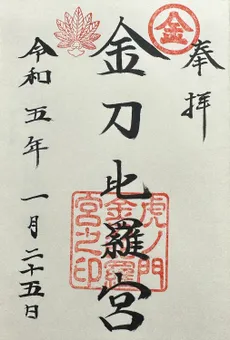 奉拝
金
金刀比羅宮
虎ノ門
金刀比羅
宮之印
令和五年 一月二十五日